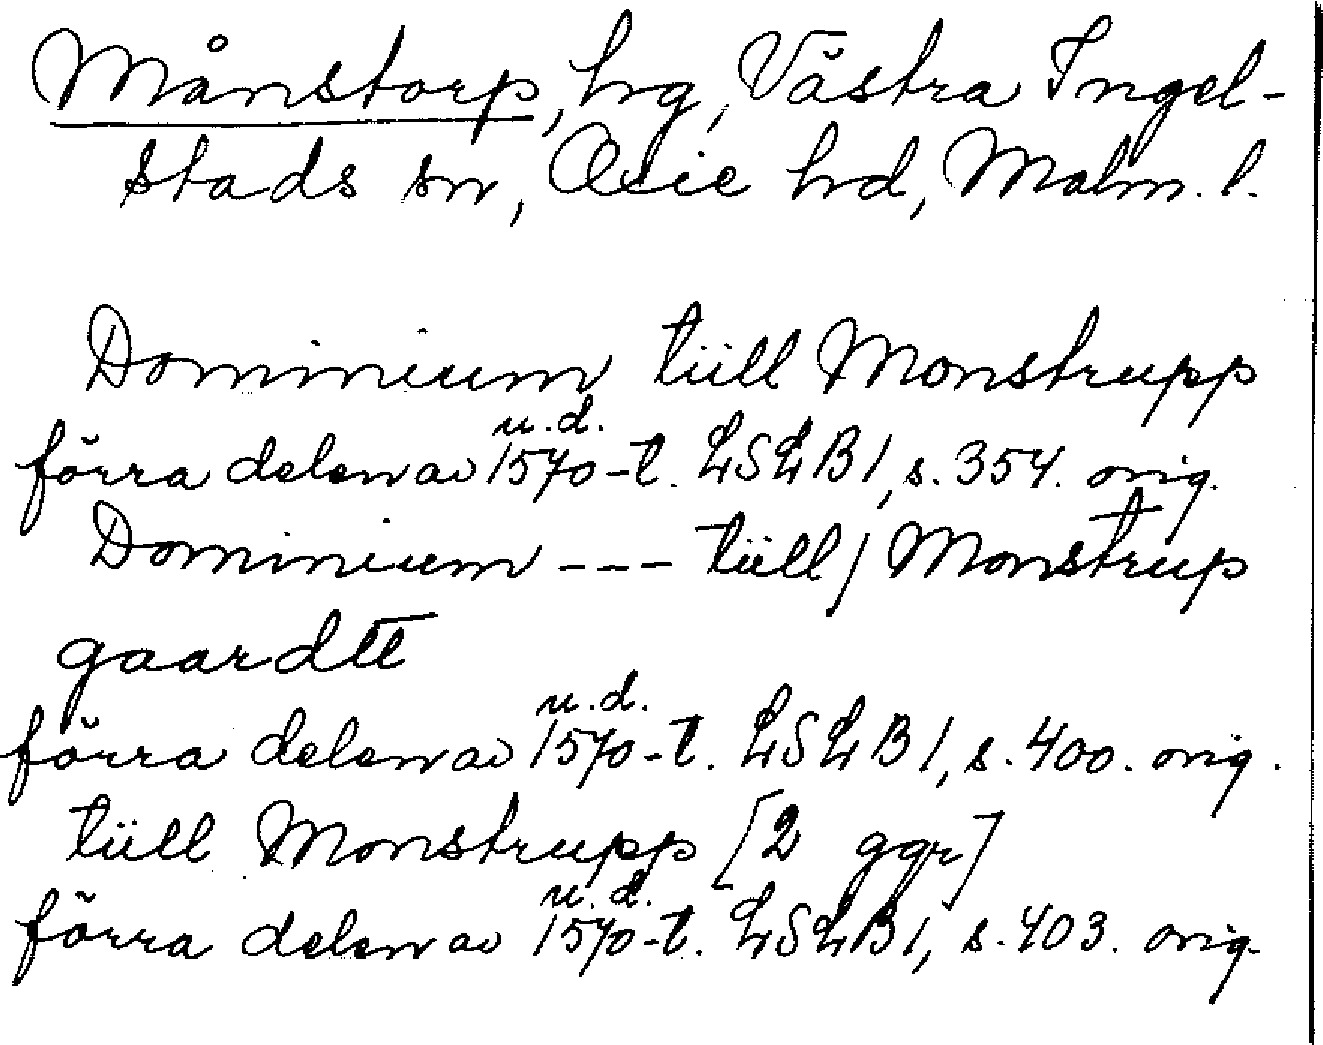 Månstorp, hrg, Västra Ingel-
stads sn, Oxie hrd, Malm. l.
Dominium tüll Monstrupp
u.d.
förra delen av 1570-t. LSLB1, s. 354. orig.
Dominium --- tüll / Monstrup
gaardtt
u.d.
förra delen av 1570-t. LSLB1, s. 400. orig.
tüll Monstrupp [2 ggr]
u.d.
förra delen av 1570-t. LSLB1, s. 403. orig.